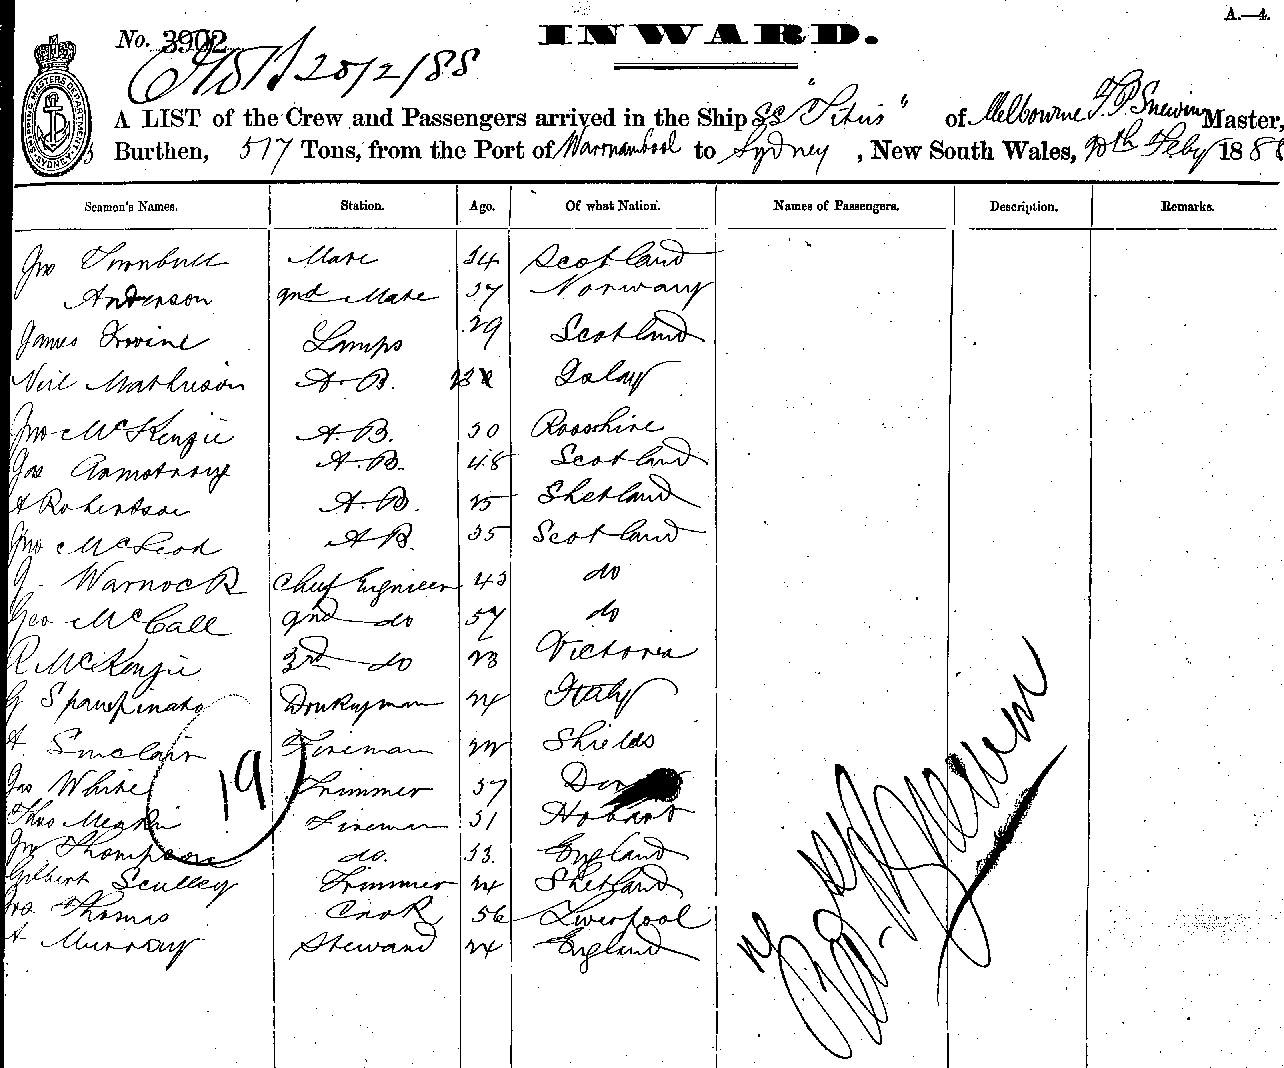 A.—4.
No. 3902 INWARD.
20/2/88
A LIST of the Crew and Passengers arrived in the Ship SS "Titus" of Melbourne Master,
Burthen, 517 Tons, from the Port of Warrnambool to Sydney, New South Wales, 20th Feby 188
Seamen's Names. Station. Age. Of what Nation. Names of Passengers. Description. Remarks.
Jno Turnbull Mate 34 Scotland
Anderson 2nd Mate 37 Norway
James Irvine Lamps 29 Scotland
Neil Mathieson A.B. Islay
Jno McKenzie A.B. 30 Rosshire
Jas Armstrong A.B. 48 Scotland
A Robertson A.B. 25 Shetland
Jno McLeod AB. 35 Scotland
J. Warnock Chief Engineer 43 do
Geo McCall 2nd do 57 do
R McKenzie 3rd do 23 Victoria
G Spampinato Donkeyman 24 Italy
A Sinclair Fireman Shields
Jas White Trimmer 37
Thos Fireman 31 Hobart
Jno Thompson do. 33. England
Gilbert Sculley Trimmer 24 Shetland
Thomas Cook 56 Liverpool
A Murray Steward 24 England
19